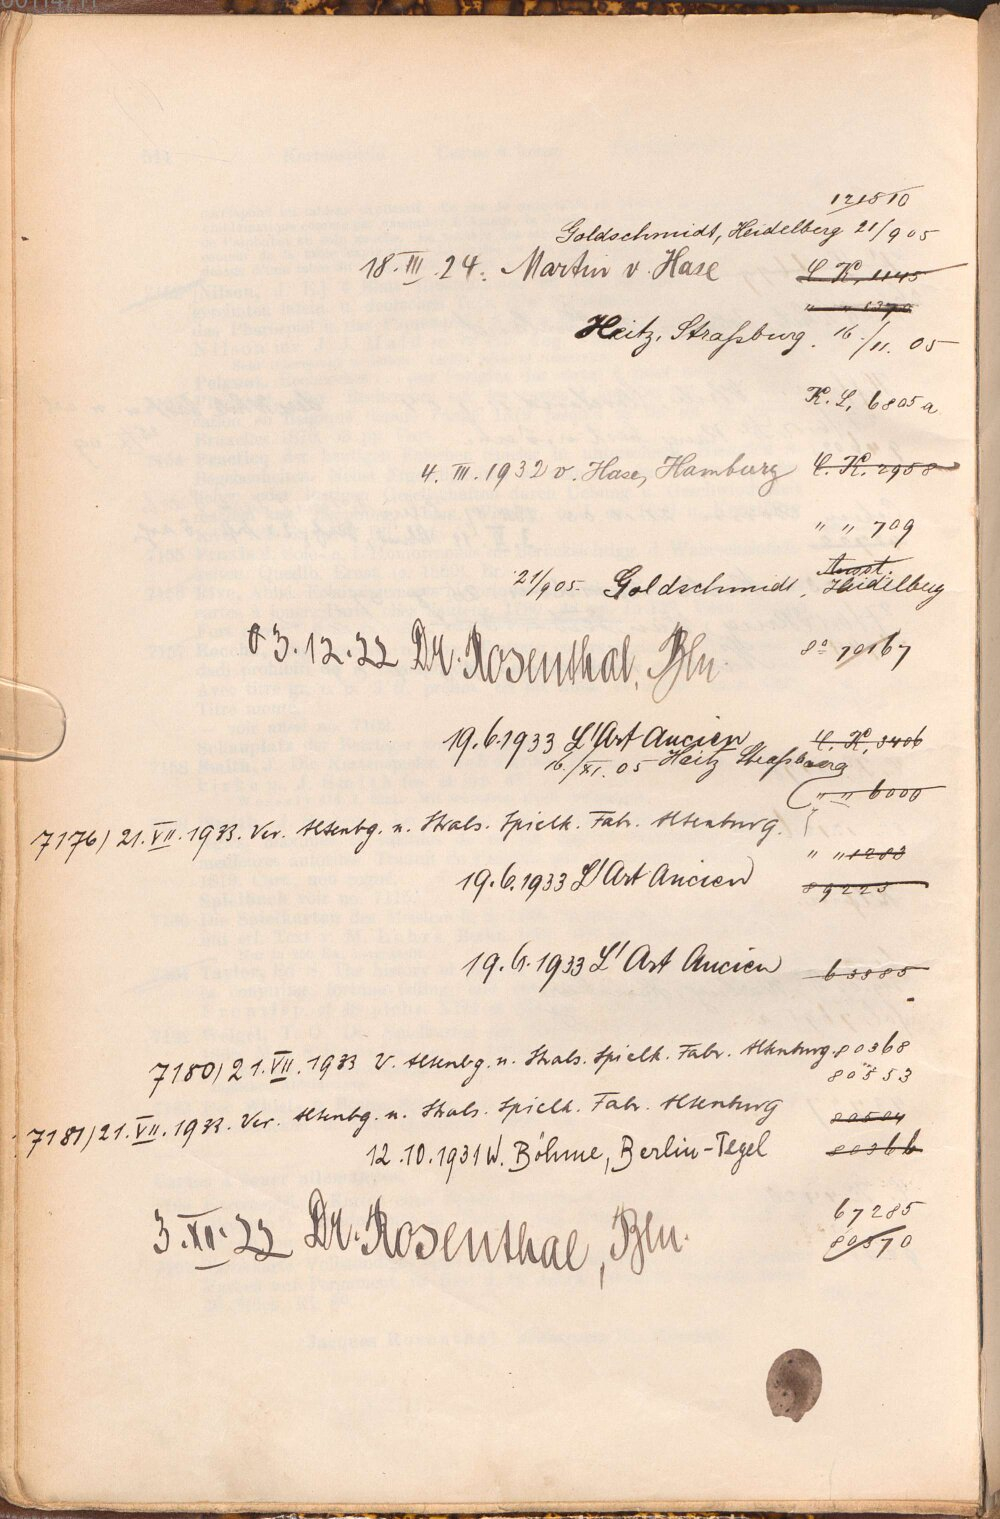 121510
Goldschmidt, Heidelberg 21/9 05
18. III. 24. Martin v. Hase C. K. 1145
" " 1370
Heitz, Straßburg. 16./11. 05
K. L. 6805 a
4. III. 1932 v. Hase, Hamburg C. K. 2958
" " 709
21/9 05. Goldschmidt, Heidelberg
3.12.22 Dr. Rosenthal, Bln. 8° 70167
19.6.1933 L'Art Ancien C. K. 3406
16./XI. 05 Heitz Straßburg
" " 6000
7176) 21. VII. 1933. Ver. Altenbg. u. Strals. Spielk. Fabr. Altenburg.
" " 1283
19.6.1933 L'Art Ancien 89225
19.6.1933 L'Art Ancien 63385
7180) 21. VII. 1933 V. Altenbg. u. Strals. Spielk. Fabr. Altenburg. 80368
80353
7181) 21. VII. 1933. Ver. Altenbg. u. Strals. Spielk. Fabr. Altenburg 80504
12.10.1931 W. Böhme, Berlin-Tegel 80366
67285
3. XII. 22 Dr. Rosenthal, Bln. 80370